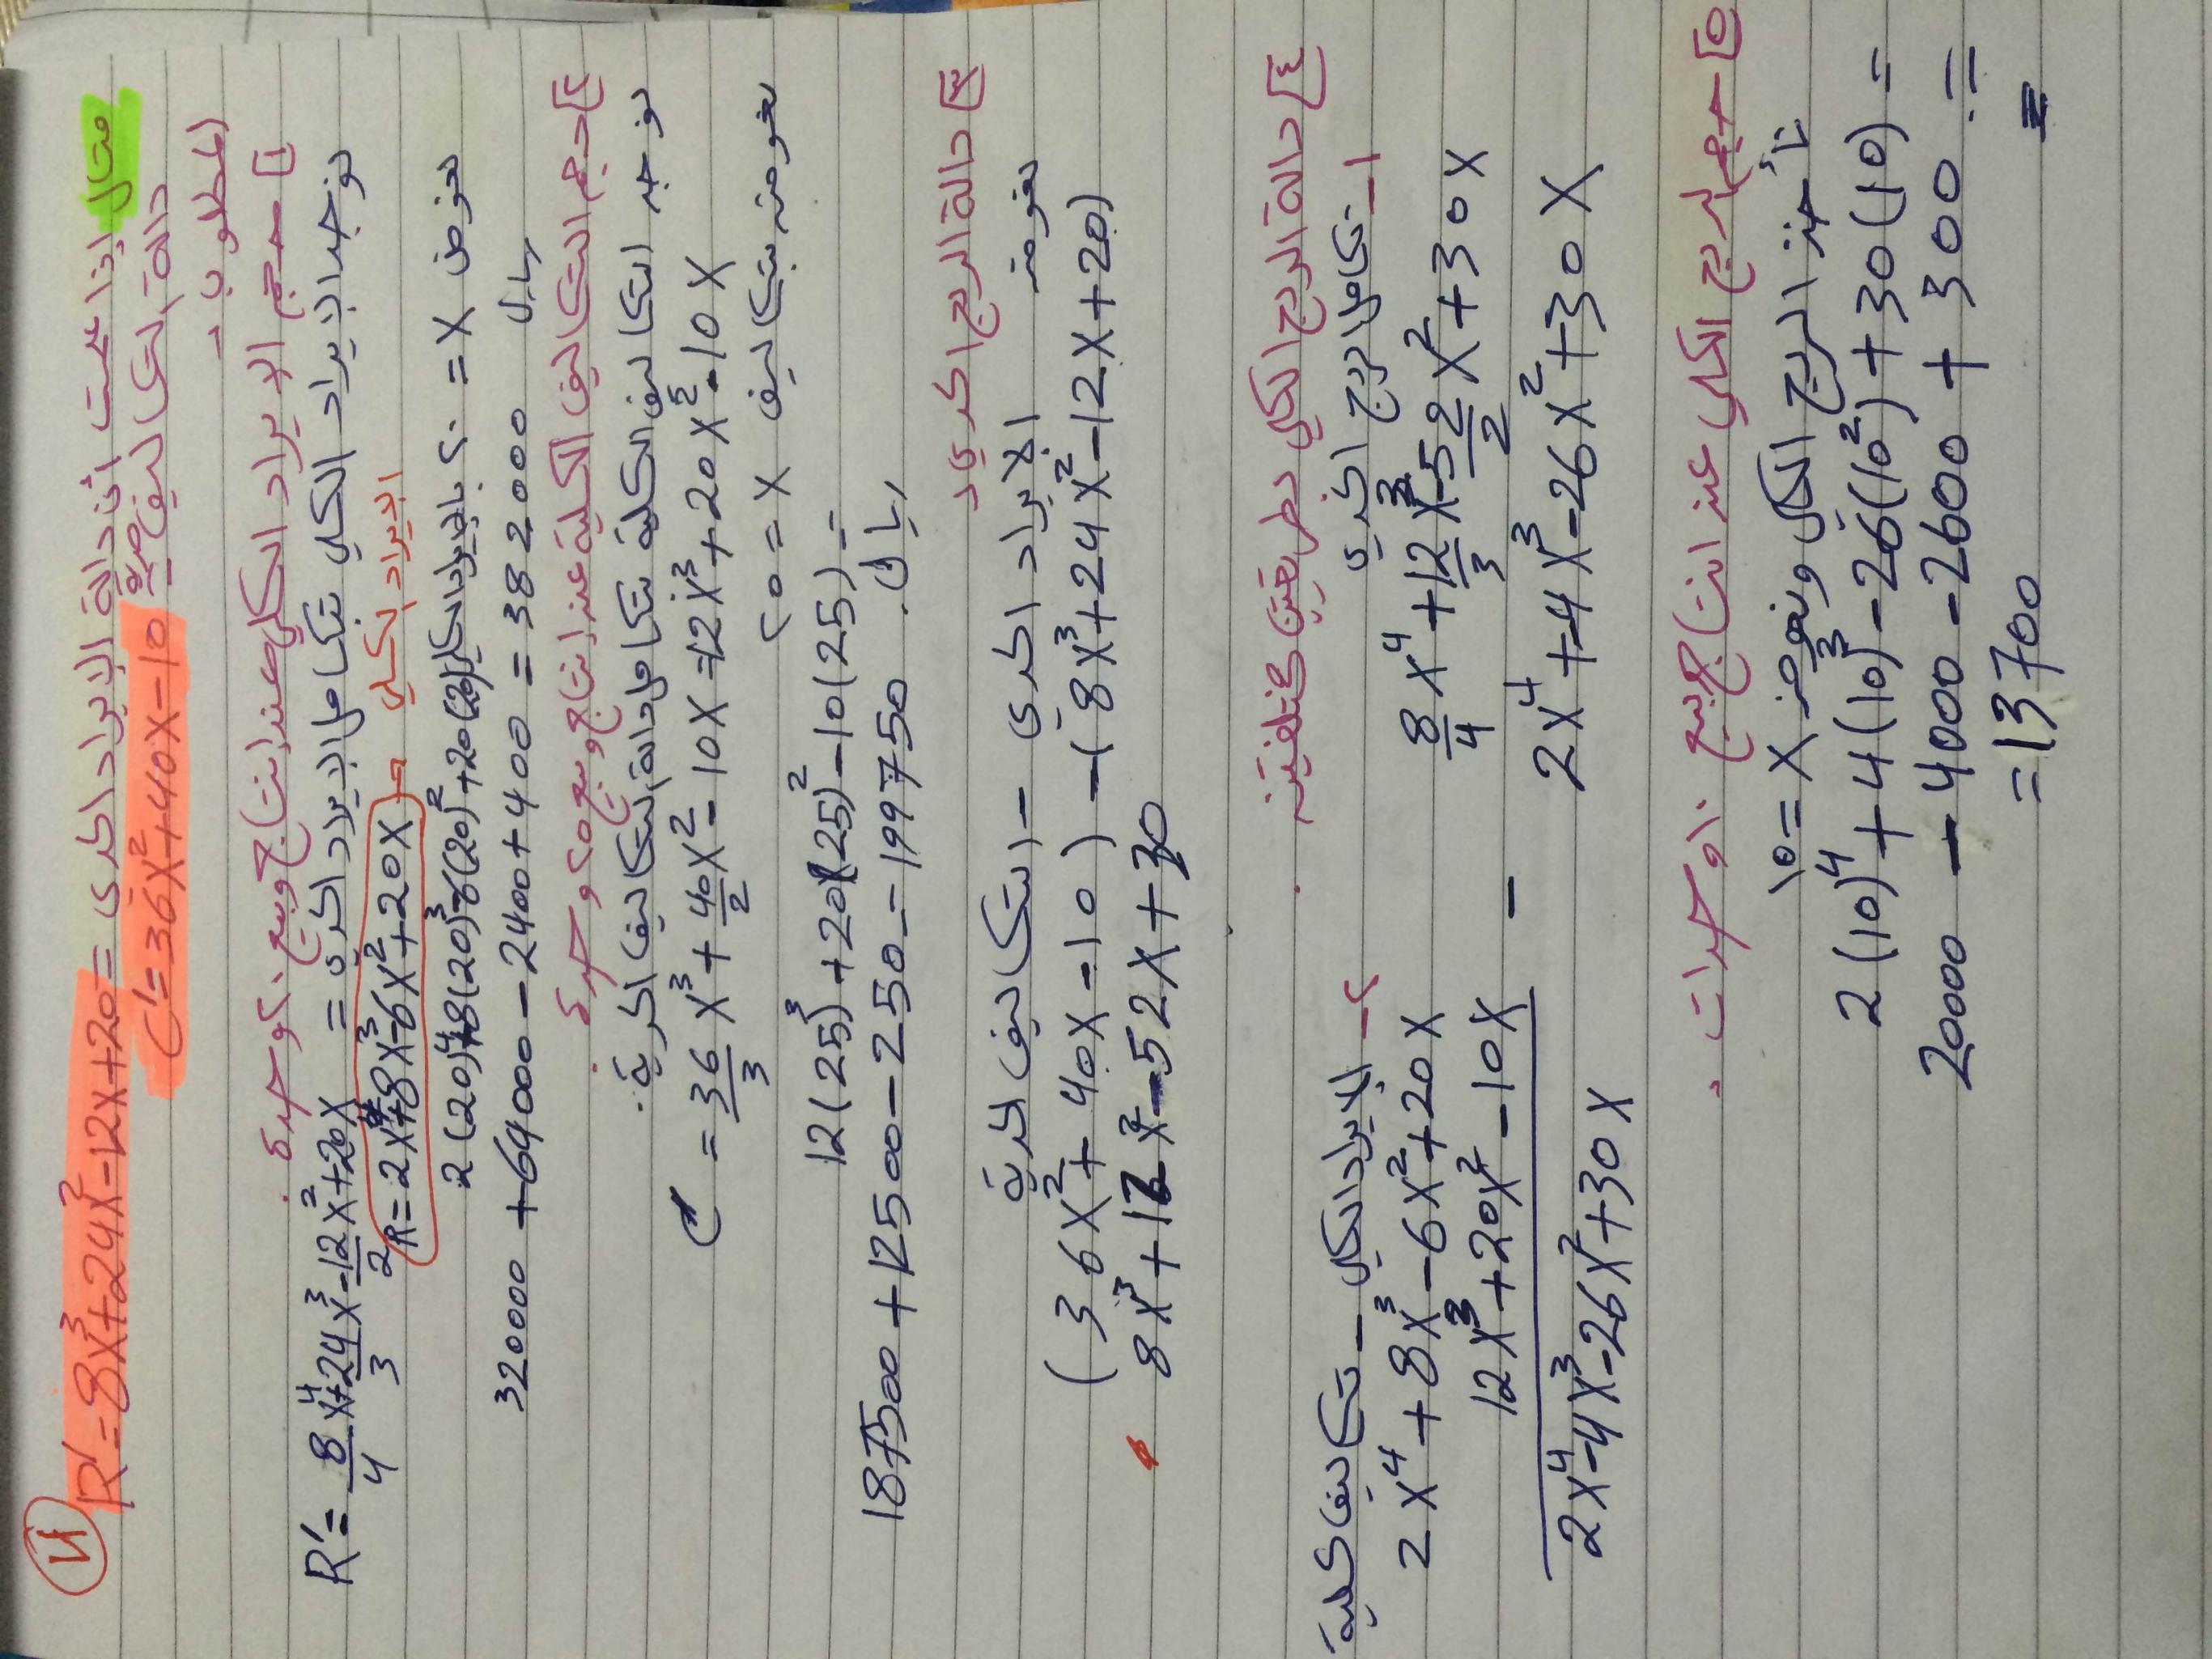 مثال إذا علمت ان دالة الإيراد الحدى = R' = 8x³ + 24x² - 12x + 20
دالة التكاليف الحدية C' = 36x² + 40x - 10
المطلوب :-
1 حجم الإيراد الكلي عند إنتاج وبيع ٢٠ وحدة .
نوجد الإيراد الكلي بتكامل الإيراد الحدي =
R' = 8/4 x⁴ + 24/3 x³ - 12/2 x² + 20x
R = 2x⁴ + 8x³ - 6x² + 20x = الايراد الكلي
نعوض x = ٢٠ بالإيراد الكلي
2(20)⁴ + 8(20)³ - 6(20)² + 20(20)
320000 + 64000 - 2400 + 400 = 382000 ريال
٢ حجم التكاليف الكلية عند إنتاج وبيع ٢٥ وحدة .
نوجد التكاليف الكلية بتكامل دالة التكاليف الحدية .
C = 36/3 x³ + 40/2 x² - 10x = 12x³ + 20x² - 10x
نعوض بتكاليف x = ٢٥
12(25)³ + 20(25)² - 10(25) =
187500 + 12500 - 250 = 199750 ريال .
٣ دالة الربح الحدي
نعوض الايراد الحدى - التكاليف الحدية
(8x³ + 24x² - 12x + 20) - (36x² + 40x - 10)
8x³ + 12x² - 52x + 30
٤ دالة الربح الكلي بطريقتين مختلفتين .
١- تكامل الربح الحدي
8/4 x⁴ + 12/3 x³ - 52/2 x² + 30x
2x⁴ + 4x³ - 26x² + 30x
٢- الايراد الكلي - تكاليف كلية
2x⁴ + 8x³ - 6x² + 20x
12x³ + 20x² - 10x -
2x⁴ - 4x³ - 26x² + 30x
٥ حجم الربح الكلي عند انتاج بيع ١٠ وحدات .
نأخذ الربح الكلي ونعوض x = ١٠
2(10)⁴ + 4(10)³ - 26(10²) + 30(10) =
20000 - 4000 - 2600 + 300 =
= 13700